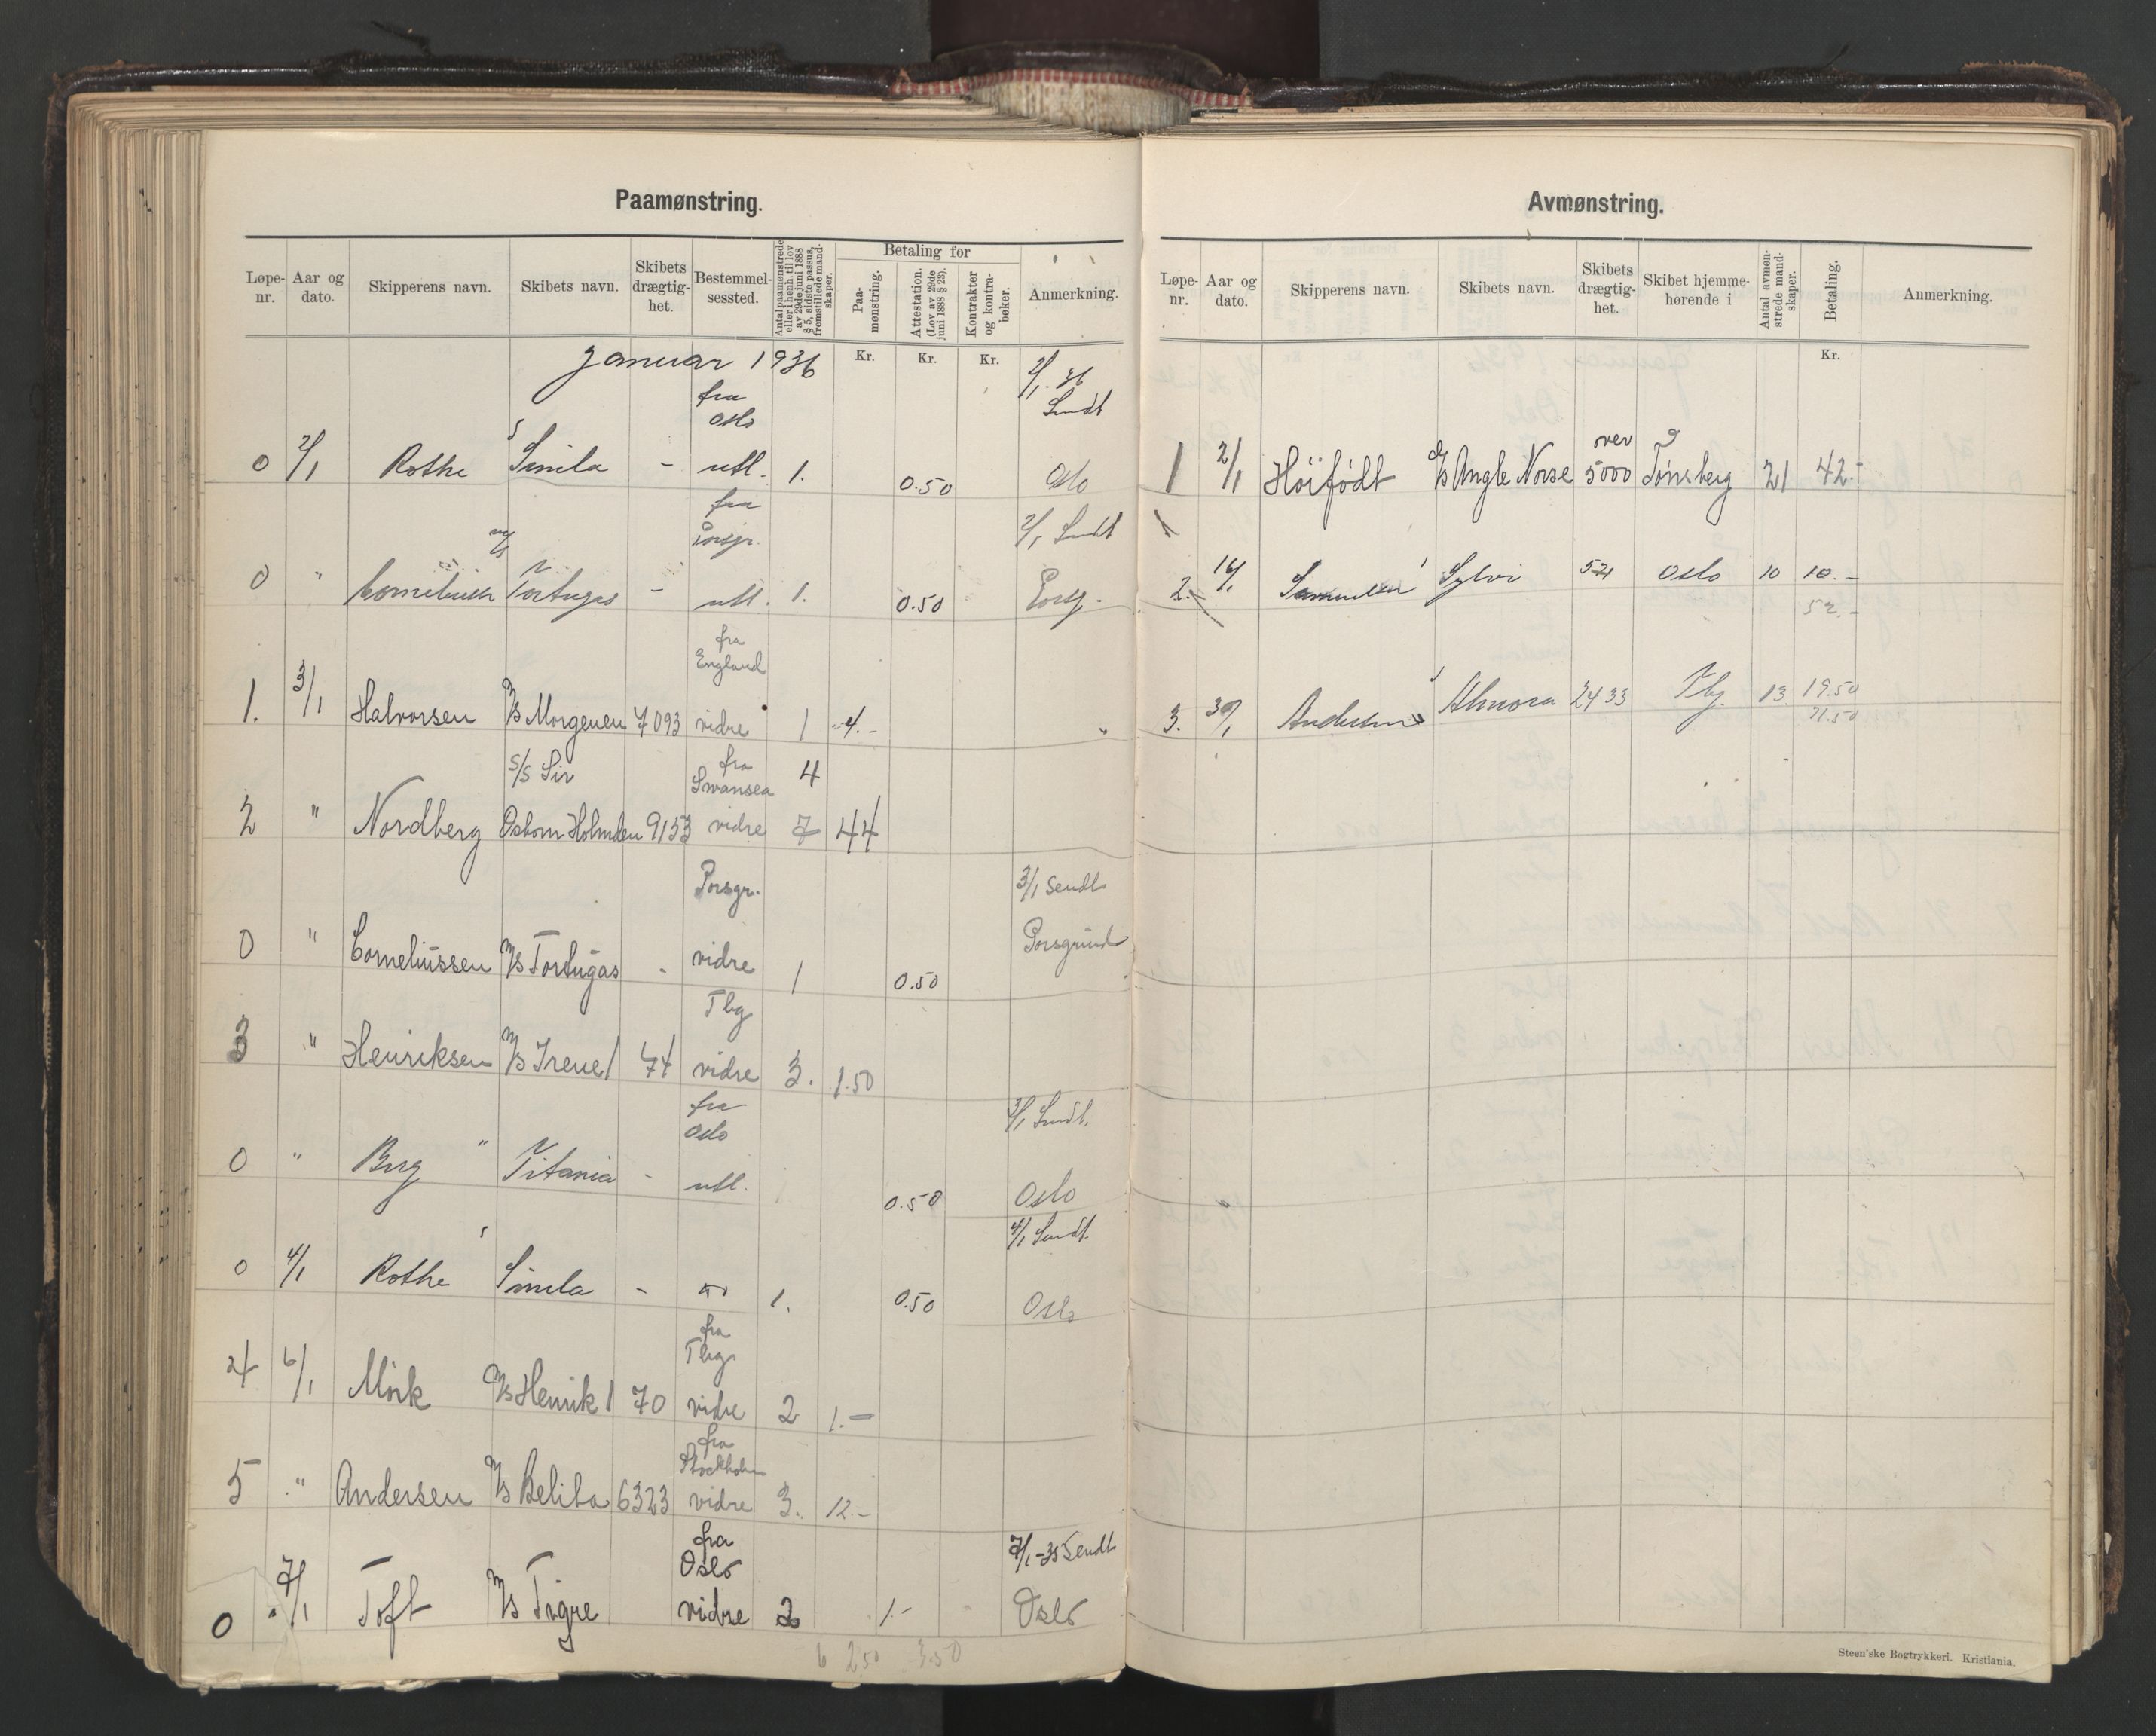 Paamønstring.
Løpe-nr. Aar og dato. Skipperens navn. Skibets navn. Skibets drægtig-het. Bestemmel-sessted. Antal paamønstrede eller i henh. til lov av 29de juni 1888 § 5, sidste passus, fremstillede mand-skaper. Betaling for Paa-mønstring. Attestation. (Lov av 29de juni 1888 § 23). Kontrakter og kontra-bøker. Anmerkning.
Kr. Kr. Kr.
Januar 1936
2/1. 36 Sendt
fra Oslo
0 2/1 Rothe s Simla - utl. 1. 0.50 Oslo
fra Porsgr. 2/1 Sendt
0 " Corneliussen m/s Tortugas - utl. 1. 0.50 Porsg.
fra England
1. 3/1 Halvorsen M/s Morgenen 7093 vidre 1 4.-
S/S Sir fra Swansea 4
2 " Nordberg Osborn Holmden 9153 vidre 7 44
Porsgr. 3/1 Sendt
0 " Corneliussen M/s Tortugas - vidre 1 0.50 Porsgrund
Tbg
3 " Henriksen M/s Irene 1 74 vidre 3. 1.50
fra Oslo 3/1 Sendt.
0 " Berg " Titania - utl. 0.50 Oslo
4/1 Sendt.
0 4/1 Rothe s Simla - 1. 0.50 Oslo
fra Tbg
4 6/1 Mørk M/s Henrik 1 70 vidre 2 1.-
fra Stockholm
5 " Andersen M/s Belita 6323 vidre 3. 12.-
fra Oslo 7/1-35 Sendt
0 7/1 Toft M/s Tigre vidre 2 1.- Oslo
6 2.50 3.50
Avmønstring.
Løpe-nr. Aar og dato. Skipperens navn. Skibets navn. Skibets drægtig-het. Skibet hjemme-hørende i Antal avmøn-strede mand-skaper. Betaling. Anmerkning.
Kr.
over
1 2/1 Höifödt Angle Norse 5000 Tönsberg 21 42.-
2. Samuelsen Sylvi 521 Oslo 10 10.-
52.-
3. 30/1 Andersen s Almora 2433 Tbg. 13 19.50
71.50
Steen'ske Bogtrykkeri. Kristiania.